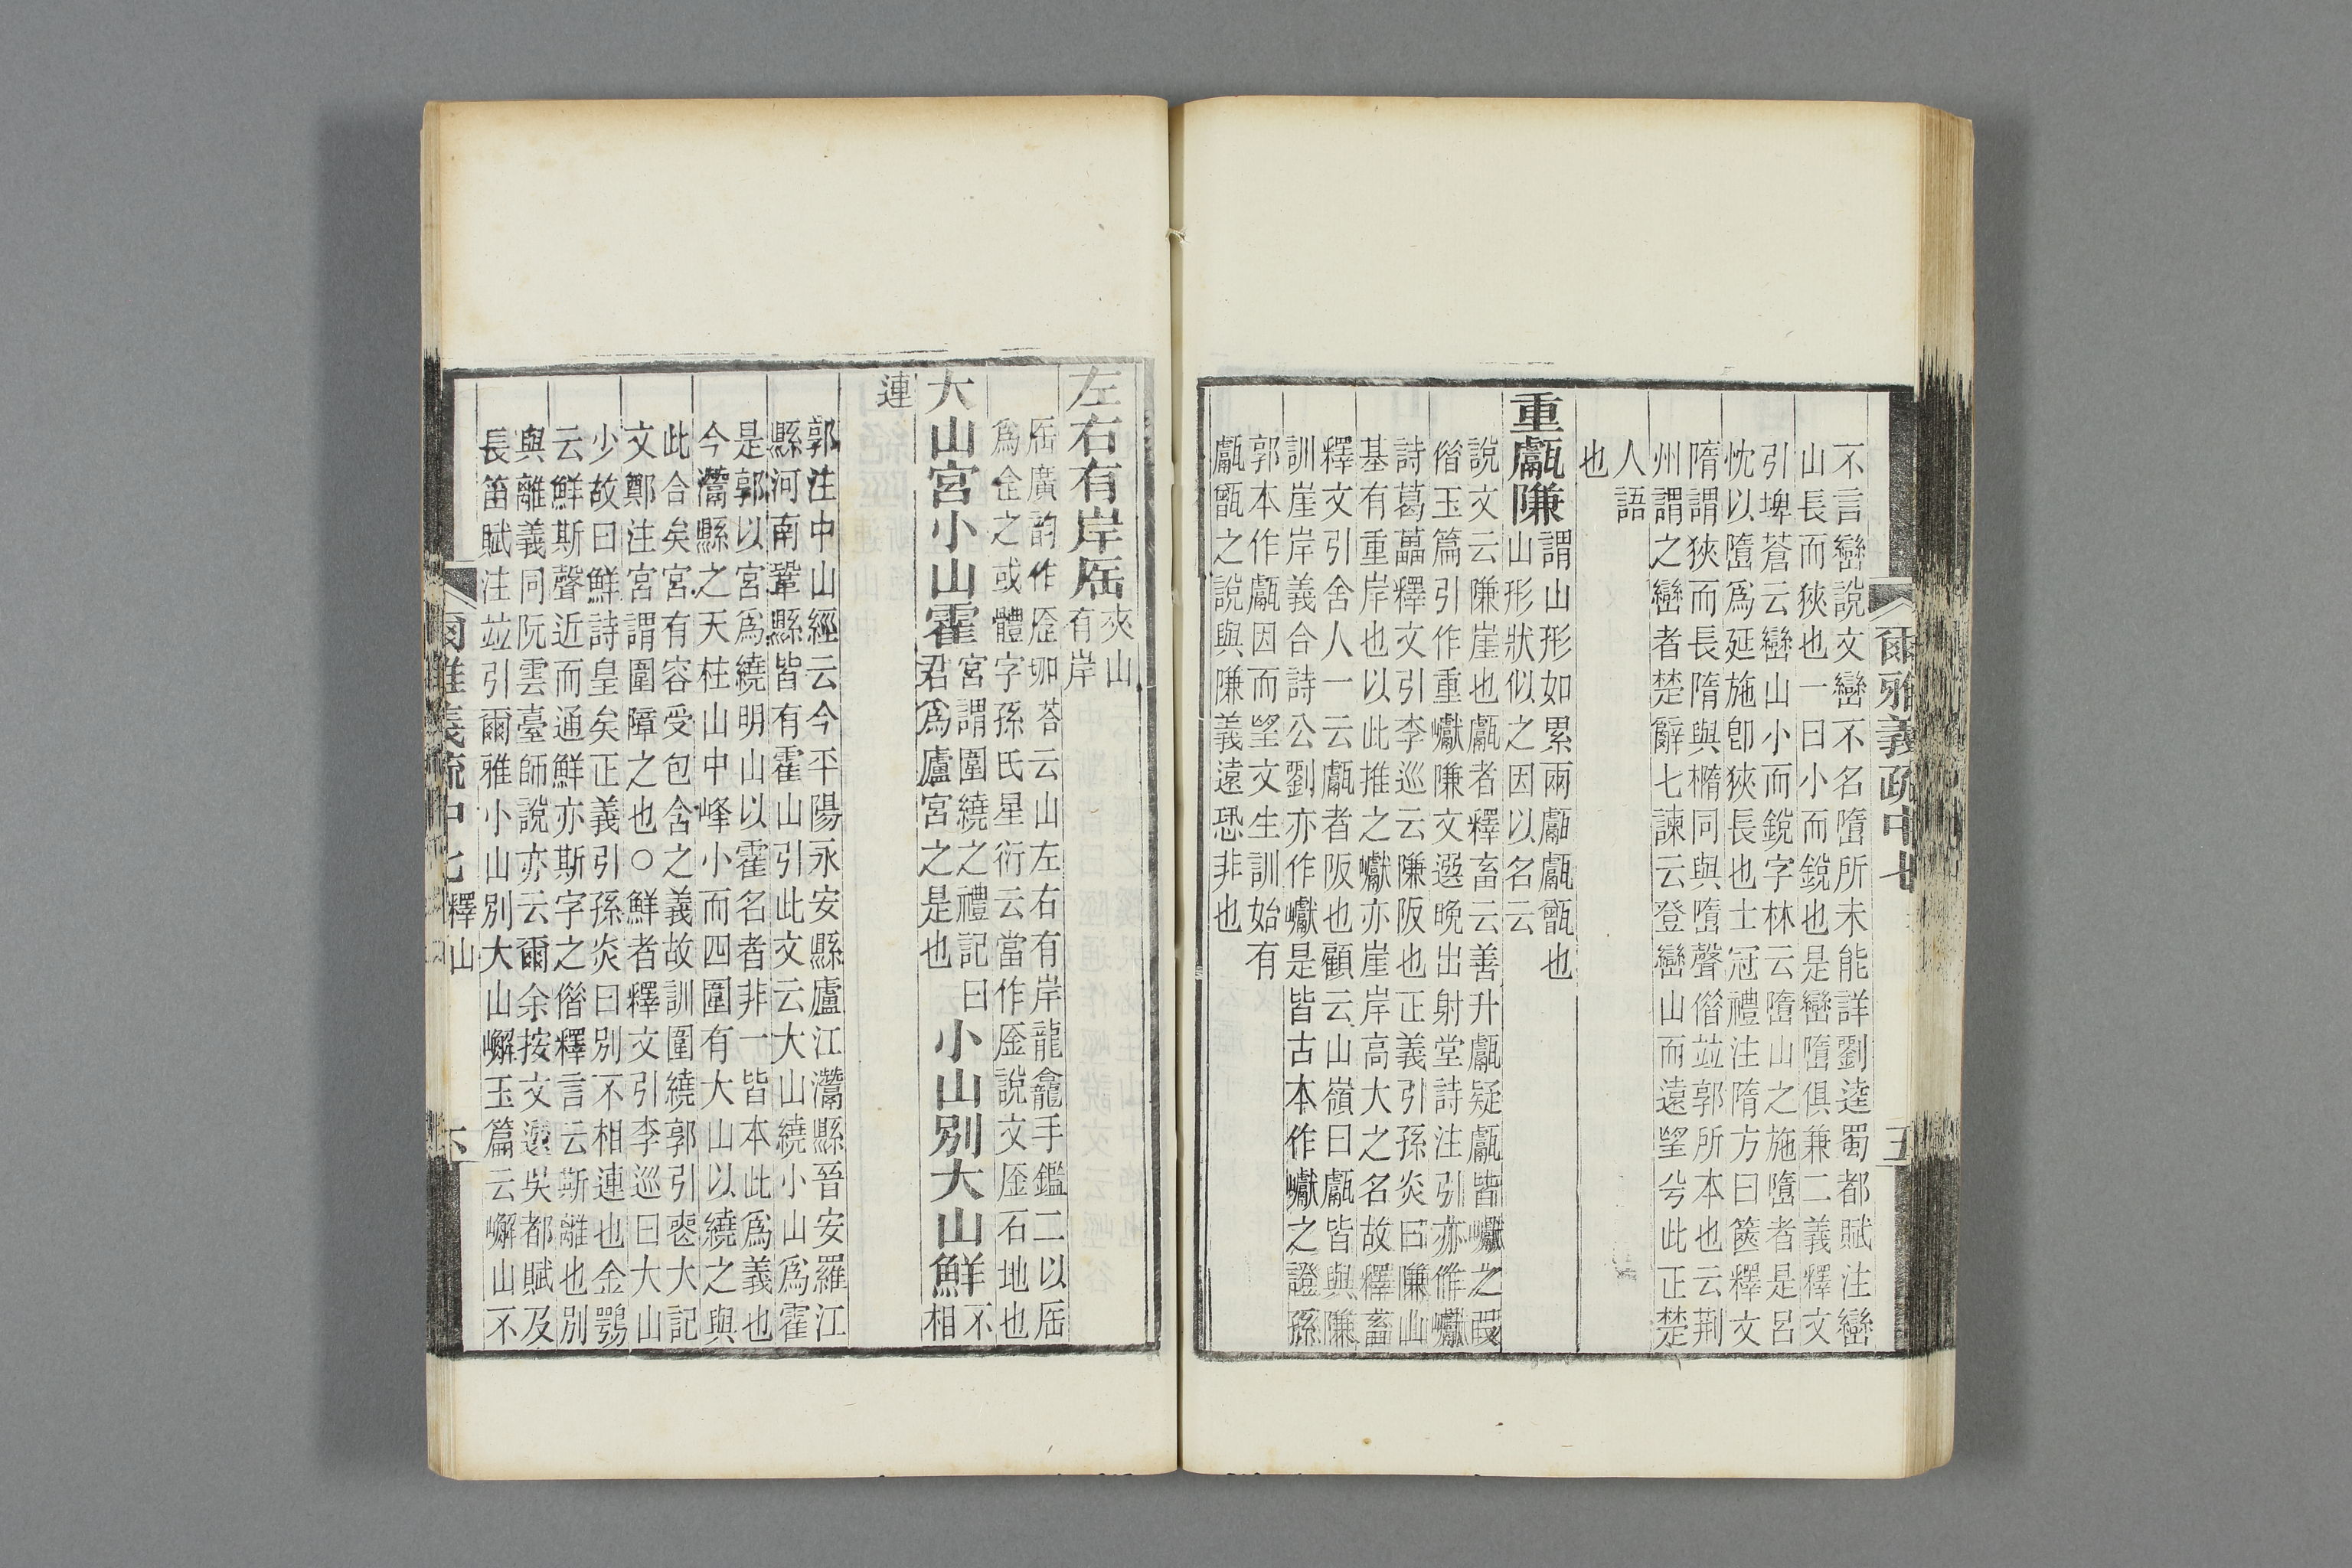 爾雅義疏中七
五
不言巒說文巒不名墮所未能詳劉逵蜀都賦注巒
山長而狹也一曰小而銳也是巒墮俱兼二義釋文
引埤蒼云巒山小而銳字林云墮山之施墮者是呂
忱以墮爲延施卽狹長也士冠禮注隋方曰篋釋文
隋謂狹而長隋與橢同與墮聲偕竝郭所本也云荆
州謂之巒者楚辭七諫云登巒山而遠望兮此正楚
人語
也
重甗隒謂山形如累兩甗甗甑也
山形狀似之因以名云
說文云隒崖也甗者釋畜云善升甗疑甗皆巘之叚
偕玉篇引作重巘隒文選晚出射堂詩注引亦作巘
詩葛藟釋文引李巡云隒阪也正義引孫炎曰隒山
基有重岸也以此推之巘亦崖岸高大之名故釋畜
釋文引舍人一云甗者阪也顧云山嶺曰甗皆與隒
訓崖岸義合詩公劉亦作巘是皆古本作巘之證孫
郭本作甗因而望文生訓始有
甗甑之說與隒義遠恐非也
左右有岸厒夾山
有岸
厒廣韵作㕉 云山左右有岸龍龕手鑑二以厒
爲仝之或體字孫氏星衍云當作㕉說文㕉石地也
大山宮小山霍宮謂圍繞之禮記曰
君爲廬宮之是也小山別大山鮮不
相
連
郭注中山經云今平陽永安縣廬江灊縣晉安羅江
縣河南鞏縣皆有霍山引此文云大山繞小山爲霍
是郭以宮爲繞明山以霍名者非一皆本此爲義也
今灊縣之天柱山中峰小而四圍有大山以繞之與
此合矣宮有容受包含之義故訓圍繞郭引喪大記
文鄭注宮謂圍障之也○鮮者釋文引李巡曰大山
少故曰鮮詩皇矣正義引孫炎曰別不相連也金鶚
云鮮斯聲近而通鮮亦斯字之偕釋言云斯離也別
與離義同阮雲臺師說亦云爾余按文選吳都賦及
長笛賦注竝引爾雅小山別大山嶰玉篇云嶰山不
爾雅義疏中七 釋山
六